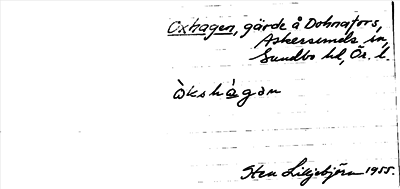 Oxhagen, gärde å Dohnafors,
Askersunds sn,
Sundbo hd, Ör. l.
òkshàgan
Sten Liljebjörn 1955.